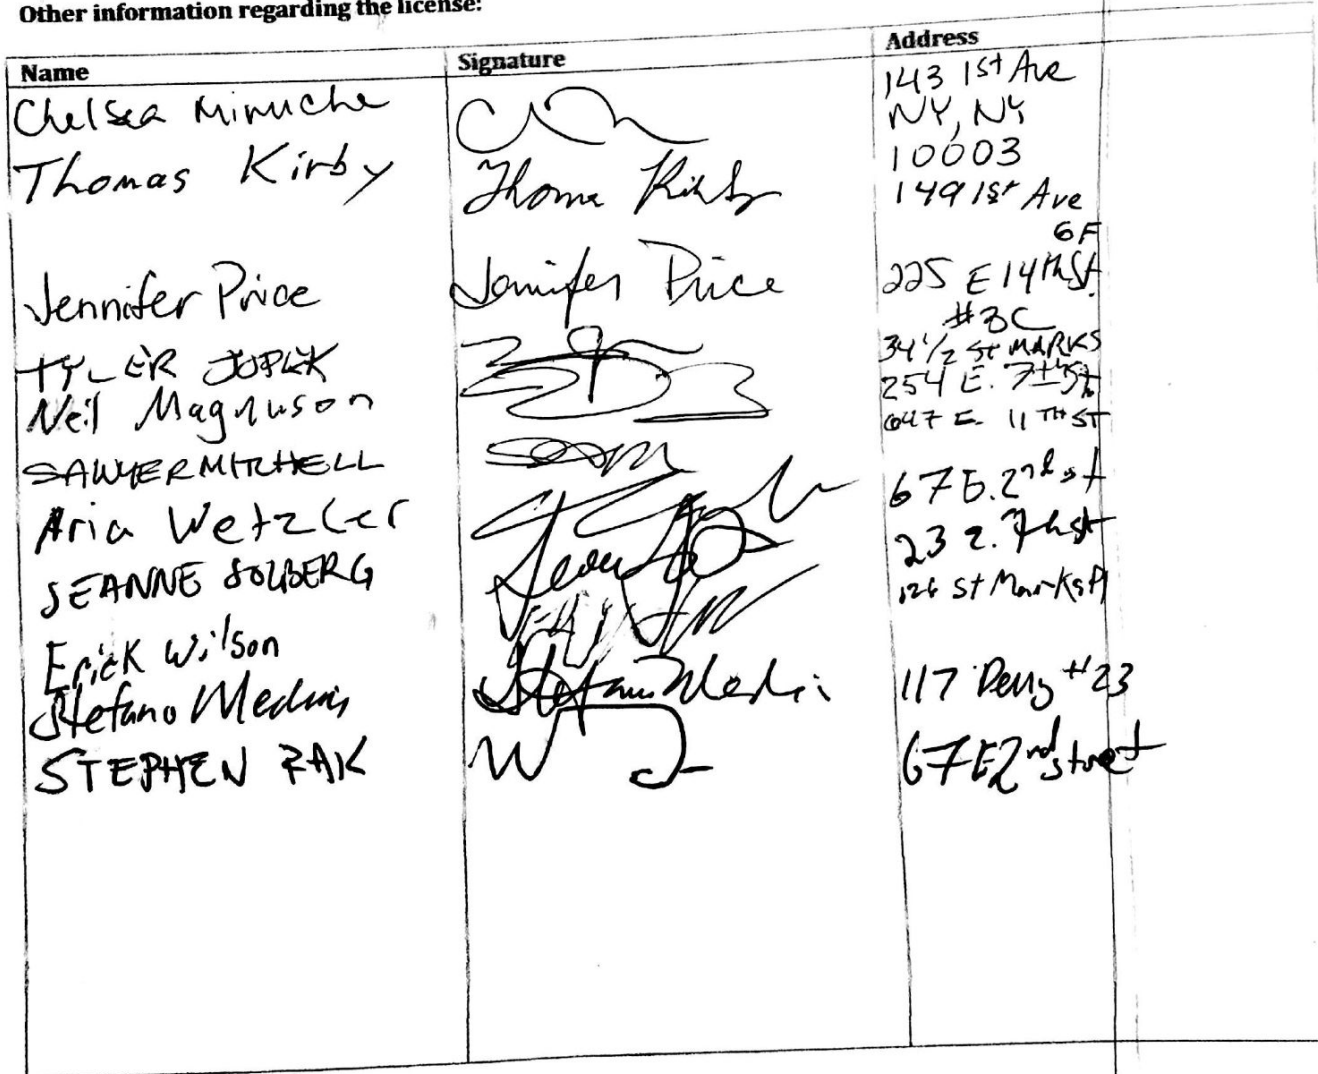 Other information regarding the license:
Name Signature Address
Chelsea Minuche 143 1st Ave
NY, NY
10003
Thomas Kirby Thomas Kirby 149 1st Ave
6F
Jennifer Price Jennifer Price 225 E 14th St.
#3C
TYLER 34 1/2 St MARKS
Neil Magnuson 254 E. 7th St
SAWYER MITCHELL 647 E. 11TH ST
Aria Wetzler 67 E. 2nd st
JEANNE SOLBERG 23 E. 7th st
Erick Wilson 126 St Marks Pl
Stefano 117 Perry #23
STEPHEN RAK 67 E 2nd street